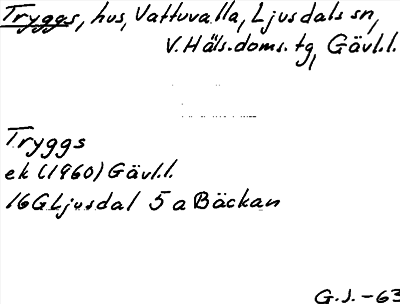 Tryggs, hus, Vattuvalla, Ljusdals sn,
V. Häls. doms. tg, Gävl.l.
Tryggs
ek (1960) Gävl.l.
16G Ljusdal 5 a Bäckan
G.J. -63